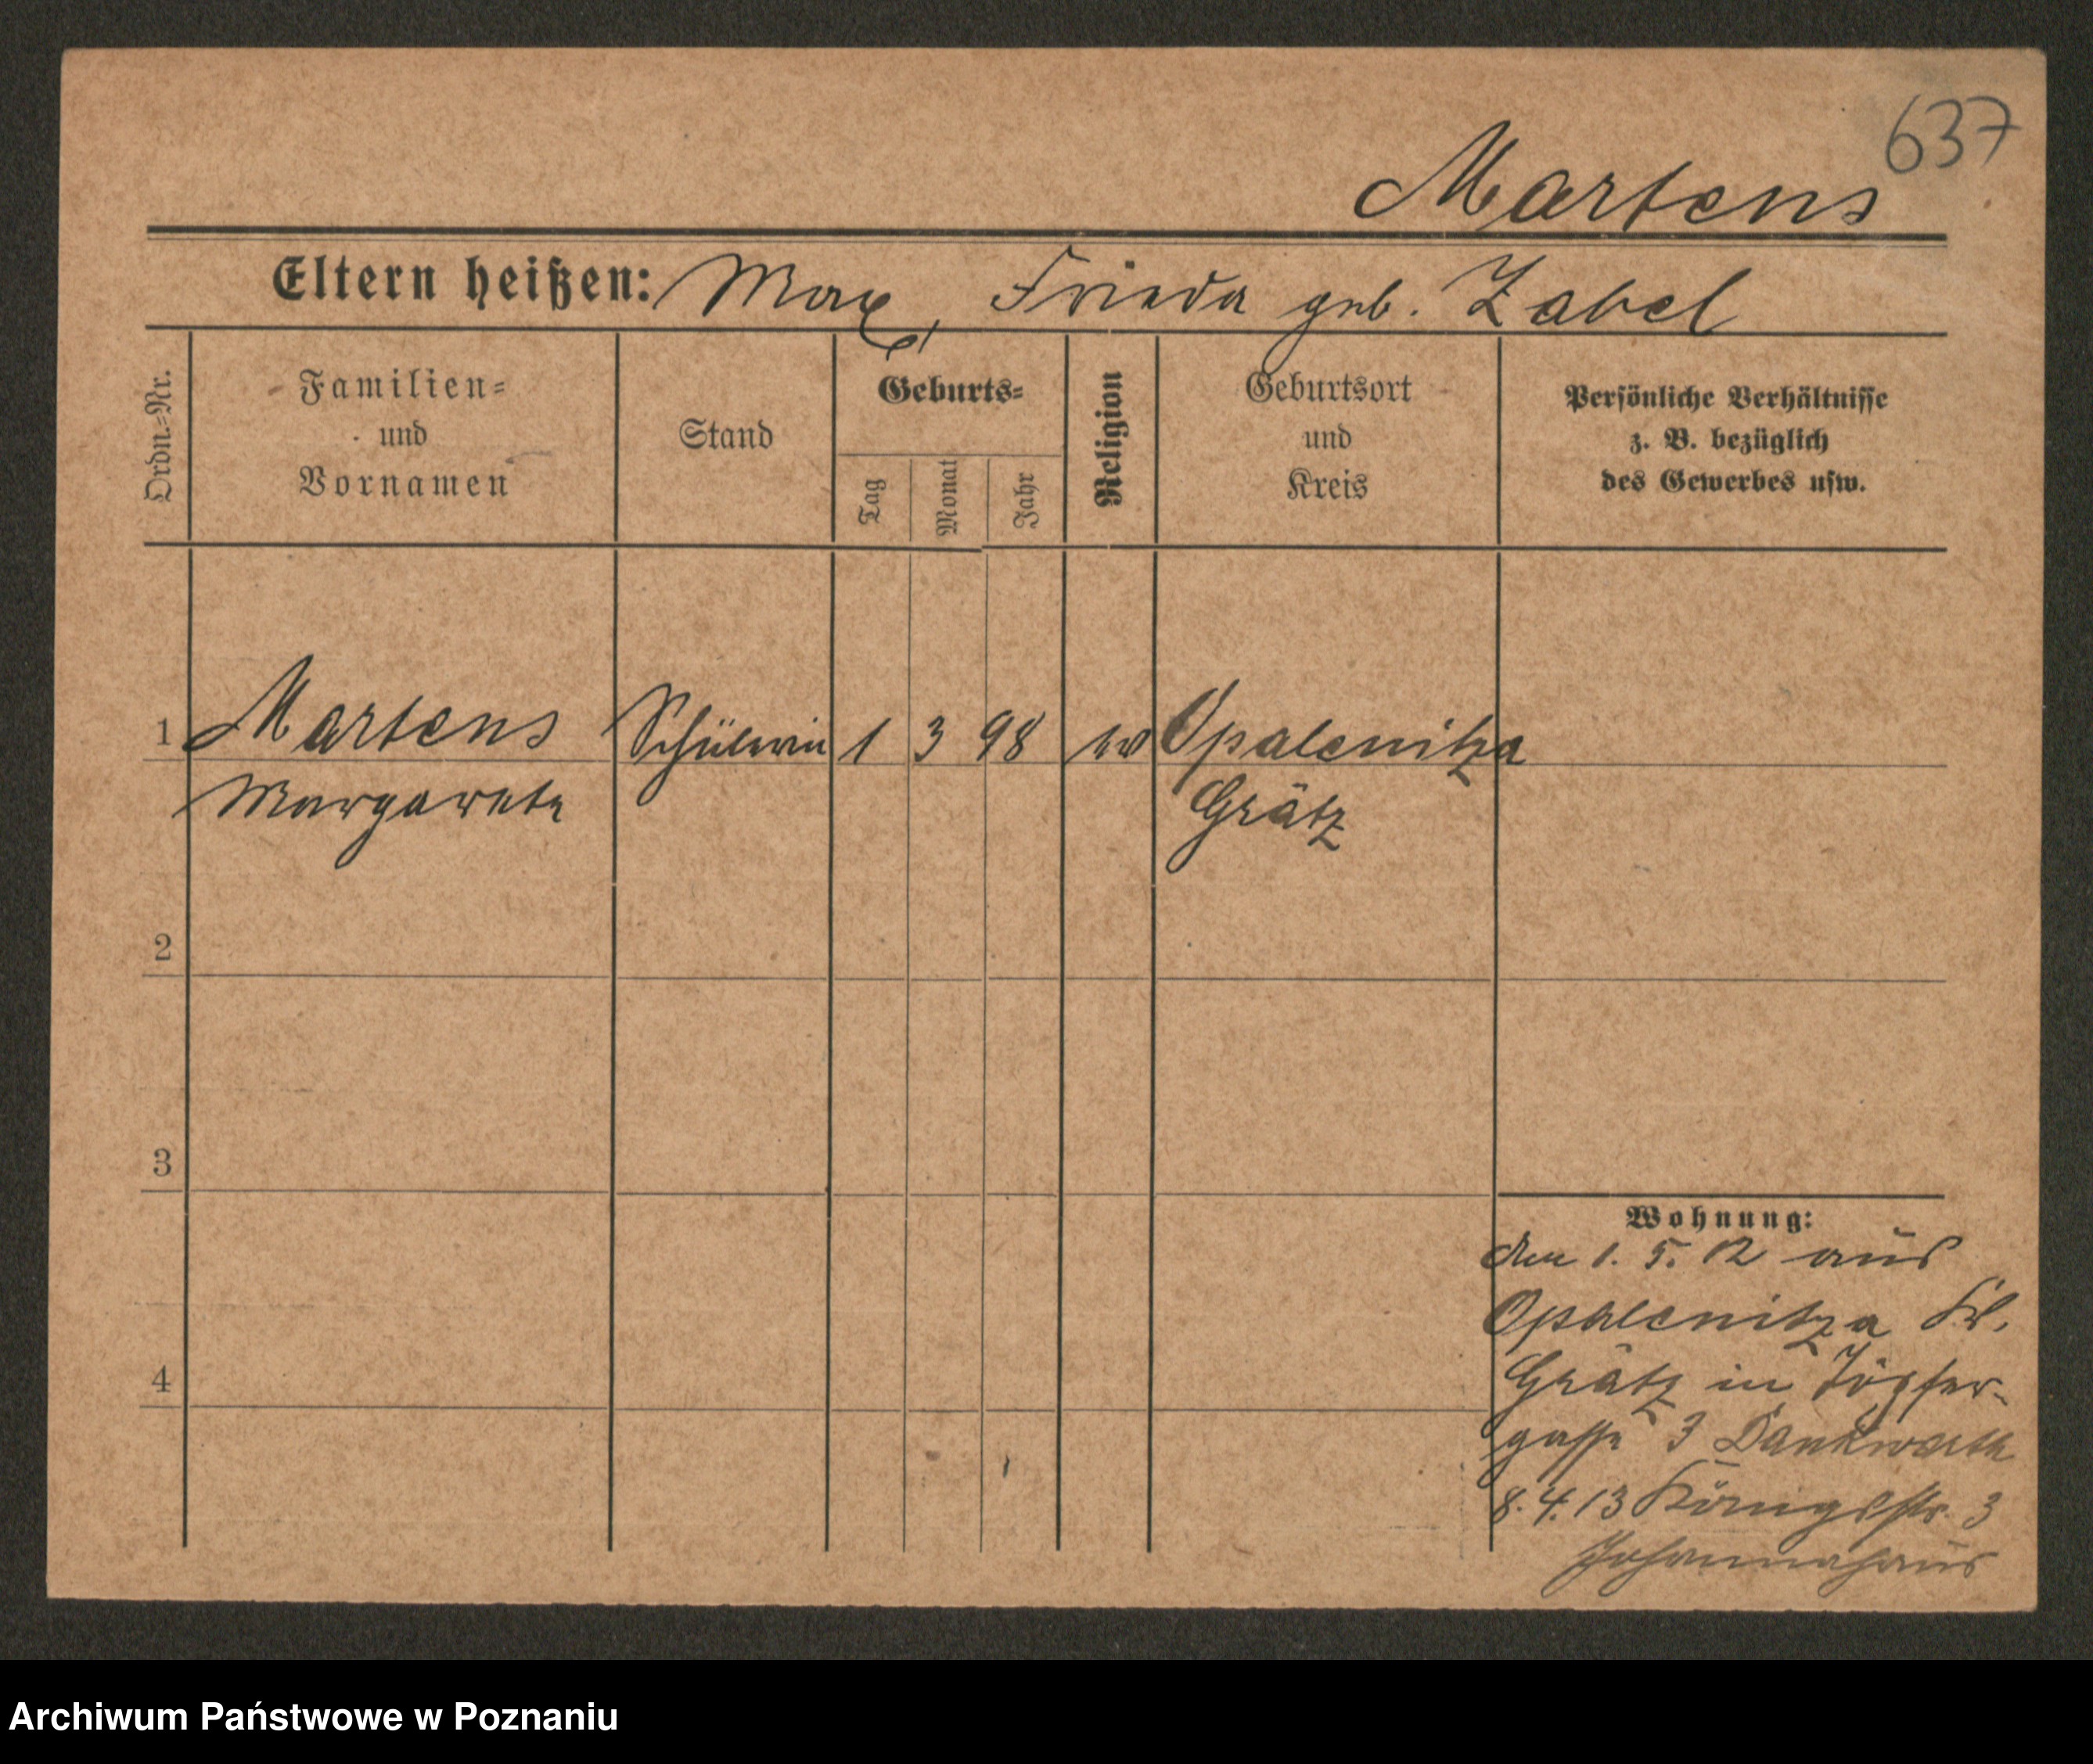 637
Martens
Eltern heißen: Max, Frieda geb. Zabel
Ordn.-Nr.
Familien-
und
Vornamen
Stand
Geburts-
Tag
Monat
Jahr
Religion
Geburtsort
und
Kreis
Persönliche Verhältnisse
z. B. bezüglich
des Gewerbes usw.
1 Martens Schülerin 1 3 98 ev Opalenitza
Margarete Grätz
2
3
4
Wohnung:
den 1. 5. 12 aus
Opalenitza Kr.
Grätz in Töpfer-
gasse 3 Dankwarth
8.4.13 Königsstr. 3
Johannahaus
Archiwum Państwowe w Poznaniu